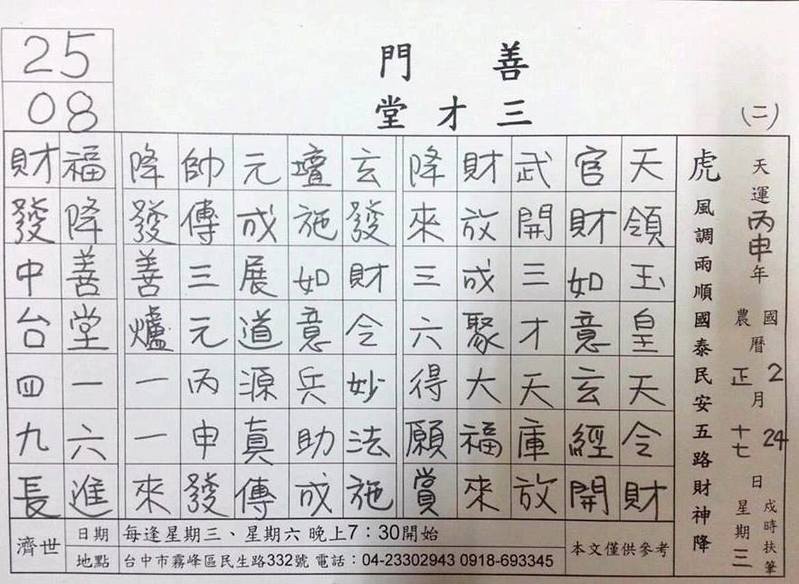 25
08
善門
三才堂
(二)
天運丙申年 國曆2月24日 農曆正月十七日 星期三 戌時扶筆
虎風調雨順國泰民安五路財神降
天領玉皇天令財
官財如意玄經開
武開三才天庫放
財放成聚大福來
降來三六得願賞
玄發財令妙法施
壇施如意兵助成
元成展道源真傳
帥傳三元丙申發
降發善爐一一來
福降善堂一六進
財發中台四九長
濟世
日期 每逢星期三、星期六 晚上7：30開始
地點 台中市霧峰區民生路332號 電話：04-23302943 0918-693345
本文僅供參考